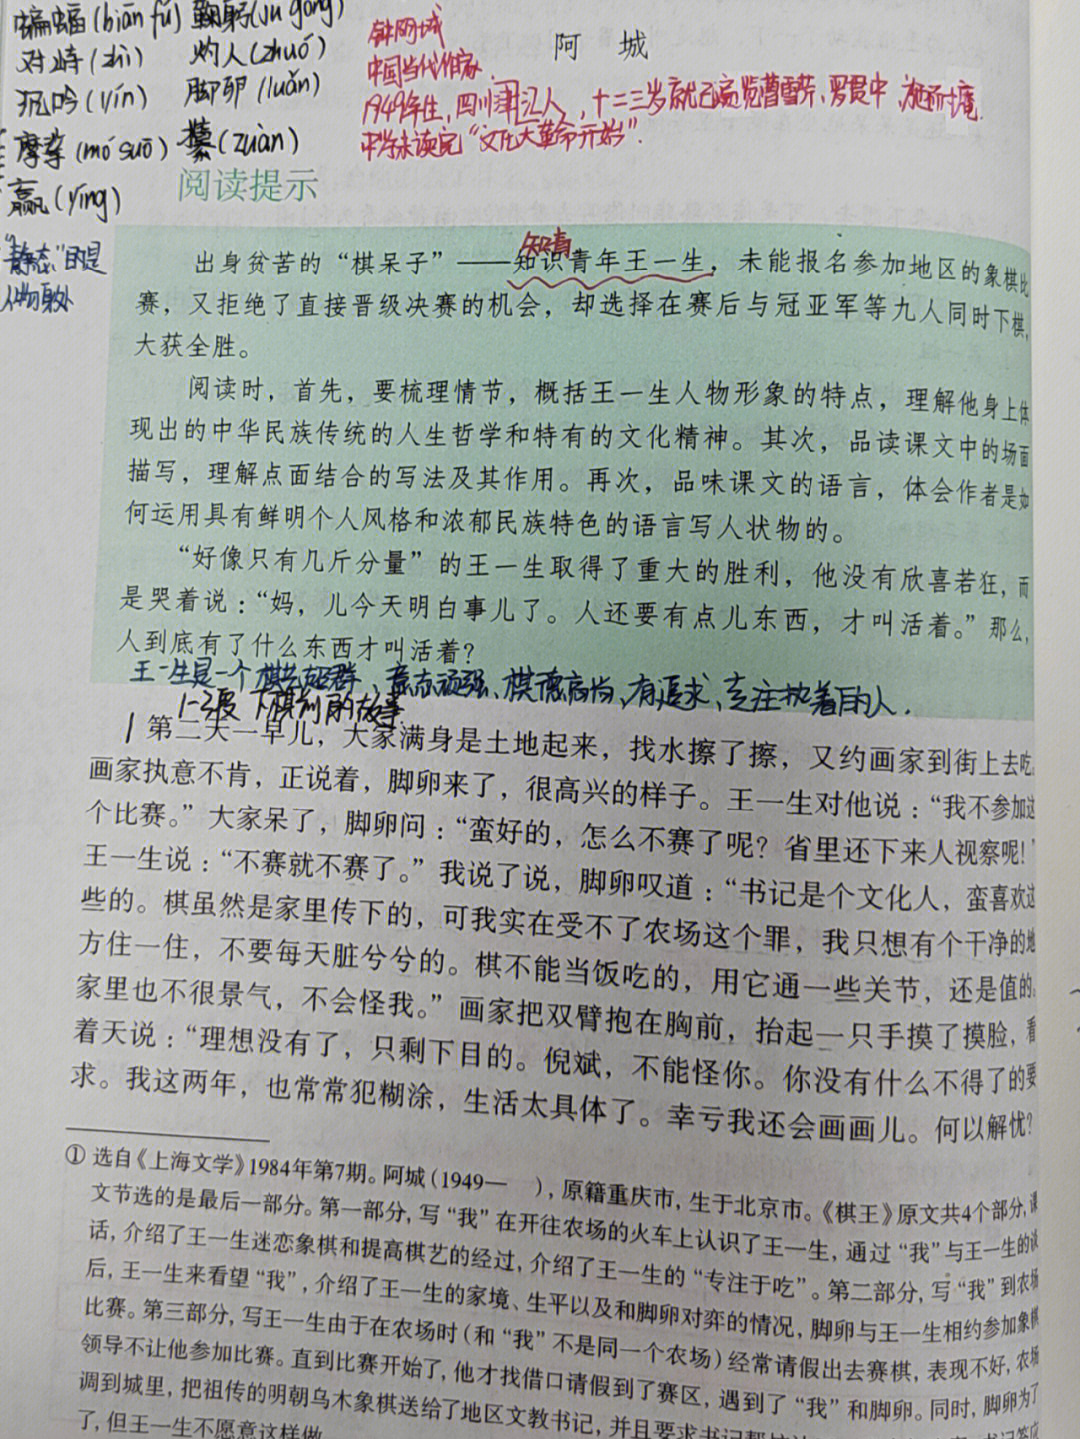 蝙蝠(biān fú) 鞠躬(jū gōng)
对峙(zhì) 灼人(zhuó)
沉吟(yín) 脚卵(luǎn)
摩挲(mó suō) 攥(zuàn)
赢(yíng)
"静态"的是
钟阿城
中国当代作家
1949年生，四川津江人，十二三岁就已遍览曹雪芹、罗贯中、施耐庵
中学未读完"文化大革命开始".
阿 城
阅读提示
知青
出身贫苦的“棋呆子”——知识青年王一生，未能报名参加地区的象棋比
赛，又拒绝了直接晋级决赛的机会，却选择在赛后与冠亚军等九人同时下棋，
大获全胜。
阅读时，首先，要梳理情节，概括王一生人物形象的特点，理解他身上体
现出的中华民族传统的人生哲学和特有的文化精神。其次，品读课文中的场面
描写，理解点面结合的写法及其作用。再次，品味课文的语言，体会作者是如
何运用具有鲜明个人风格和浓郁民族特色的语言写人状物的。
“好像只有几斤分量”的王一生取得了重大的胜利，他没有欣喜若狂，而
是哭着说：“妈，儿今天明白事儿了。人还要有点儿东西，才叫活着。”那么，
人到底有了什么东西才叫活着？
王一生是一个棋艺超群、意志顽强、棋德高尚、有追求、专注执着的人.
1-3段 下棋前的故事
1 第二天一早儿，大家满身是土地起来，找水擦了擦，又约画家到街上去吃。
画家执意不肯，正说着，脚卵来了，很高兴的样子。王一生对他说：“我不参加这
个比赛。”大家呆了，脚卵问：“蛮好的，怎么不赛了呢？省里还下来人视察呢！”
王一生说：“不赛就不赛了。”我说了说，脚卵叹道：“书记是个文化人，蛮喜欢这
些的。棋虽然是家里传下的，可我实在受不了农场这个罪，我只想有个干净的地
方住一住，不要每天脏兮兮的。棋不能当饭吃的，用它通一些关节，还是值的。
家里也不很景气，不会怪我。”画家把双臂抱在胸前，抬起一只手摸了摸脸，看
着天说：“理想没有了，只剩下目的。倪斌，不能怪你。你没有什么不得了的要
求。我这两年，也常常犯糊涂，生活太具体了。幸亏我还会画画儿。何以解忧？
① 选自《上海文学》1984年第7期。阿城（1949— ），原籍重庆市，生于北京市。《棋王》原文共4个部分，课
文节选的是最后一部分。第一部分，写“我”在开往农场的火车上认识了王一生，通过“我”与王一生的谈
话，介绍了王一生迷恋象棋和提高棋艺的经过，介绍了王一生的“专注于吃”。第二部分，写“我”到农场
后，王一生来看望“我”，介绍了王一生的家境、生平以及和脚卵对弈的情况，脚卵与王一生相约参加象棋
比赛。第三部分，写王一生由于在农场时（和“我”不是同一个农场）经常请假出去赛棋，表现不好，农场
领导不让他参加比赛。直到比赛开始了，他才找借口请假到了赛区，遇到了“我”和脚卵。同时，脚卵为了
调到城里，把祖传的明朝乌木象棋送给了地区文教书记，并且要求书记帮
了，但王一生不愿意这样做